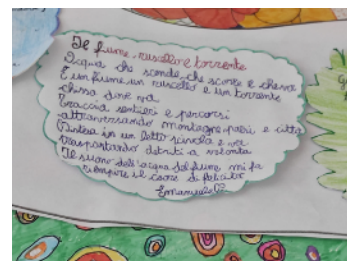 Il fiume, ruscello e torrente
Acqua che scende, che scorre e che va
È un fiume un ruscello e un torrente
chissa dove va
Traccia sentieri e percorsi
attraversando montagne paesi e città
Distesa in un letto scivola e va
trasportando detriti a volontà
Il suono dell'acqua del fiume mi fa
riempire il cuore di felicità
Emanuele